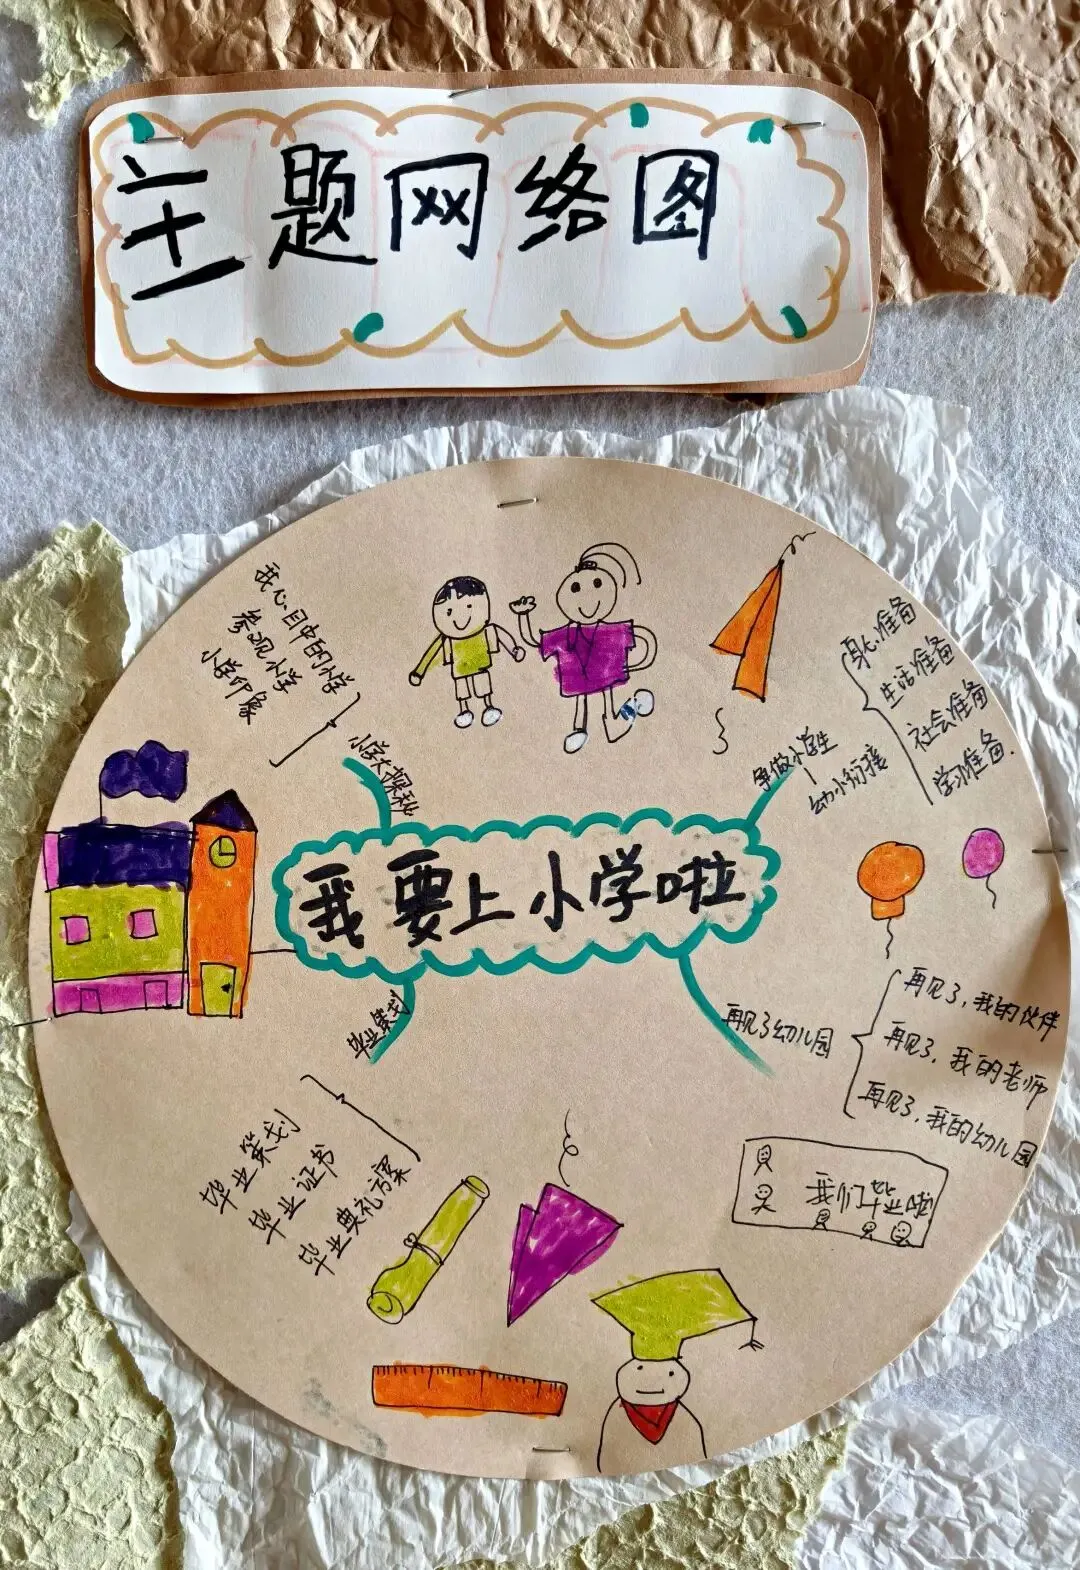 主题网络图
我心目中的小学
参观小学
小学印象
小学大探秘
争做小学生
幼小衔接
身心准备
生活准备
社会准备
学习准备.
我要上小学啦
毕业策划
毕业策划
毕业证书
毕业典礼方案
再见了幼儿园
再见了,我的伙伴
再见了,我的老师
再见了,我的幼儿园
我们毕业啦